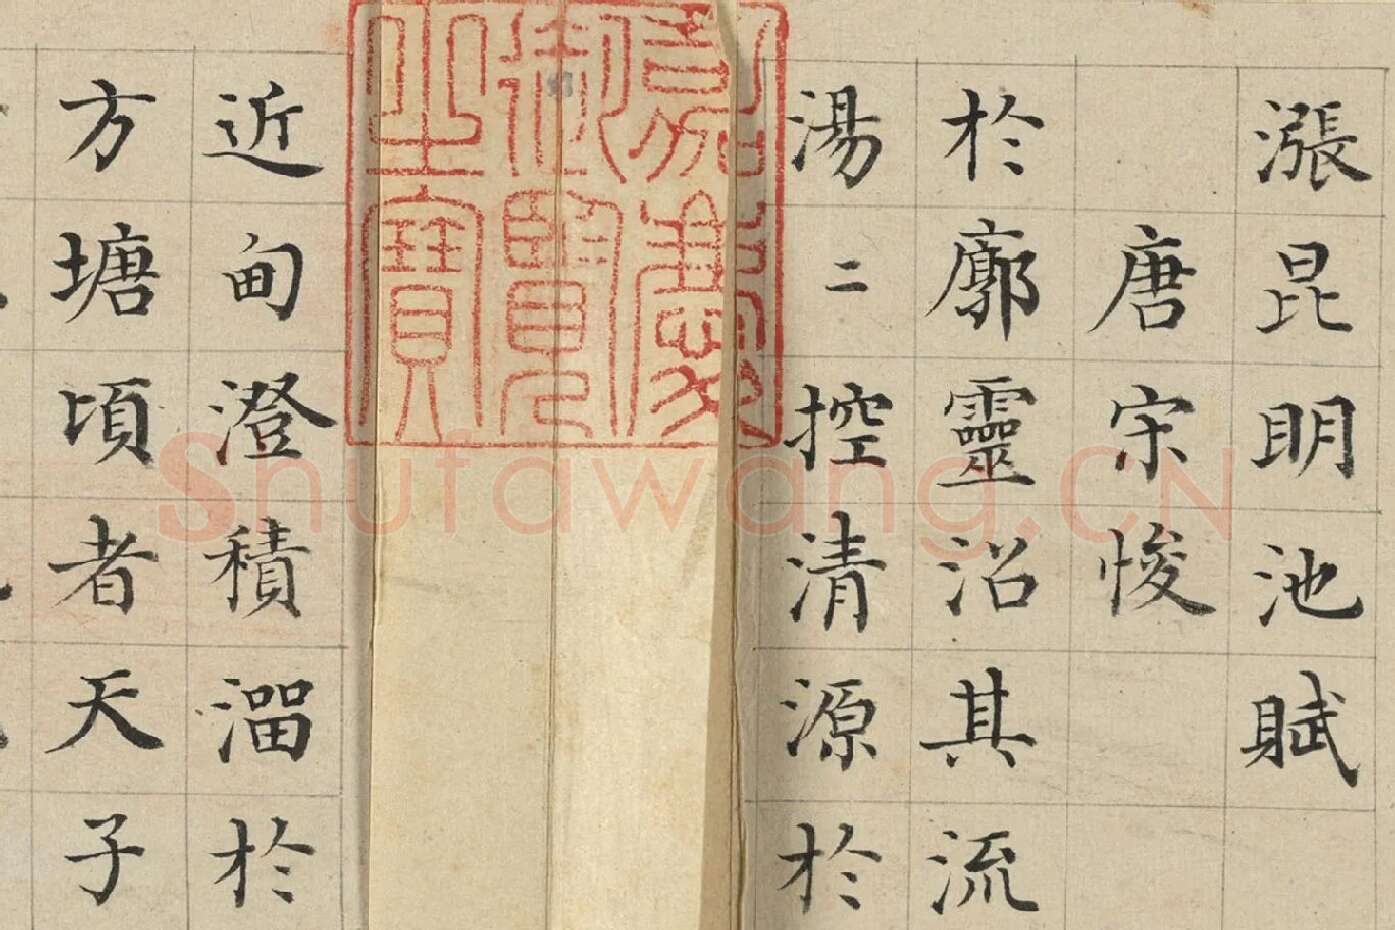 漲昆明池賦
唐宋悛
於廓靈沼其流
湯二控清源於
嘉慶
御覽
之寶
近甸澄積溜於
方塘頃者天子
Shufawang.CN